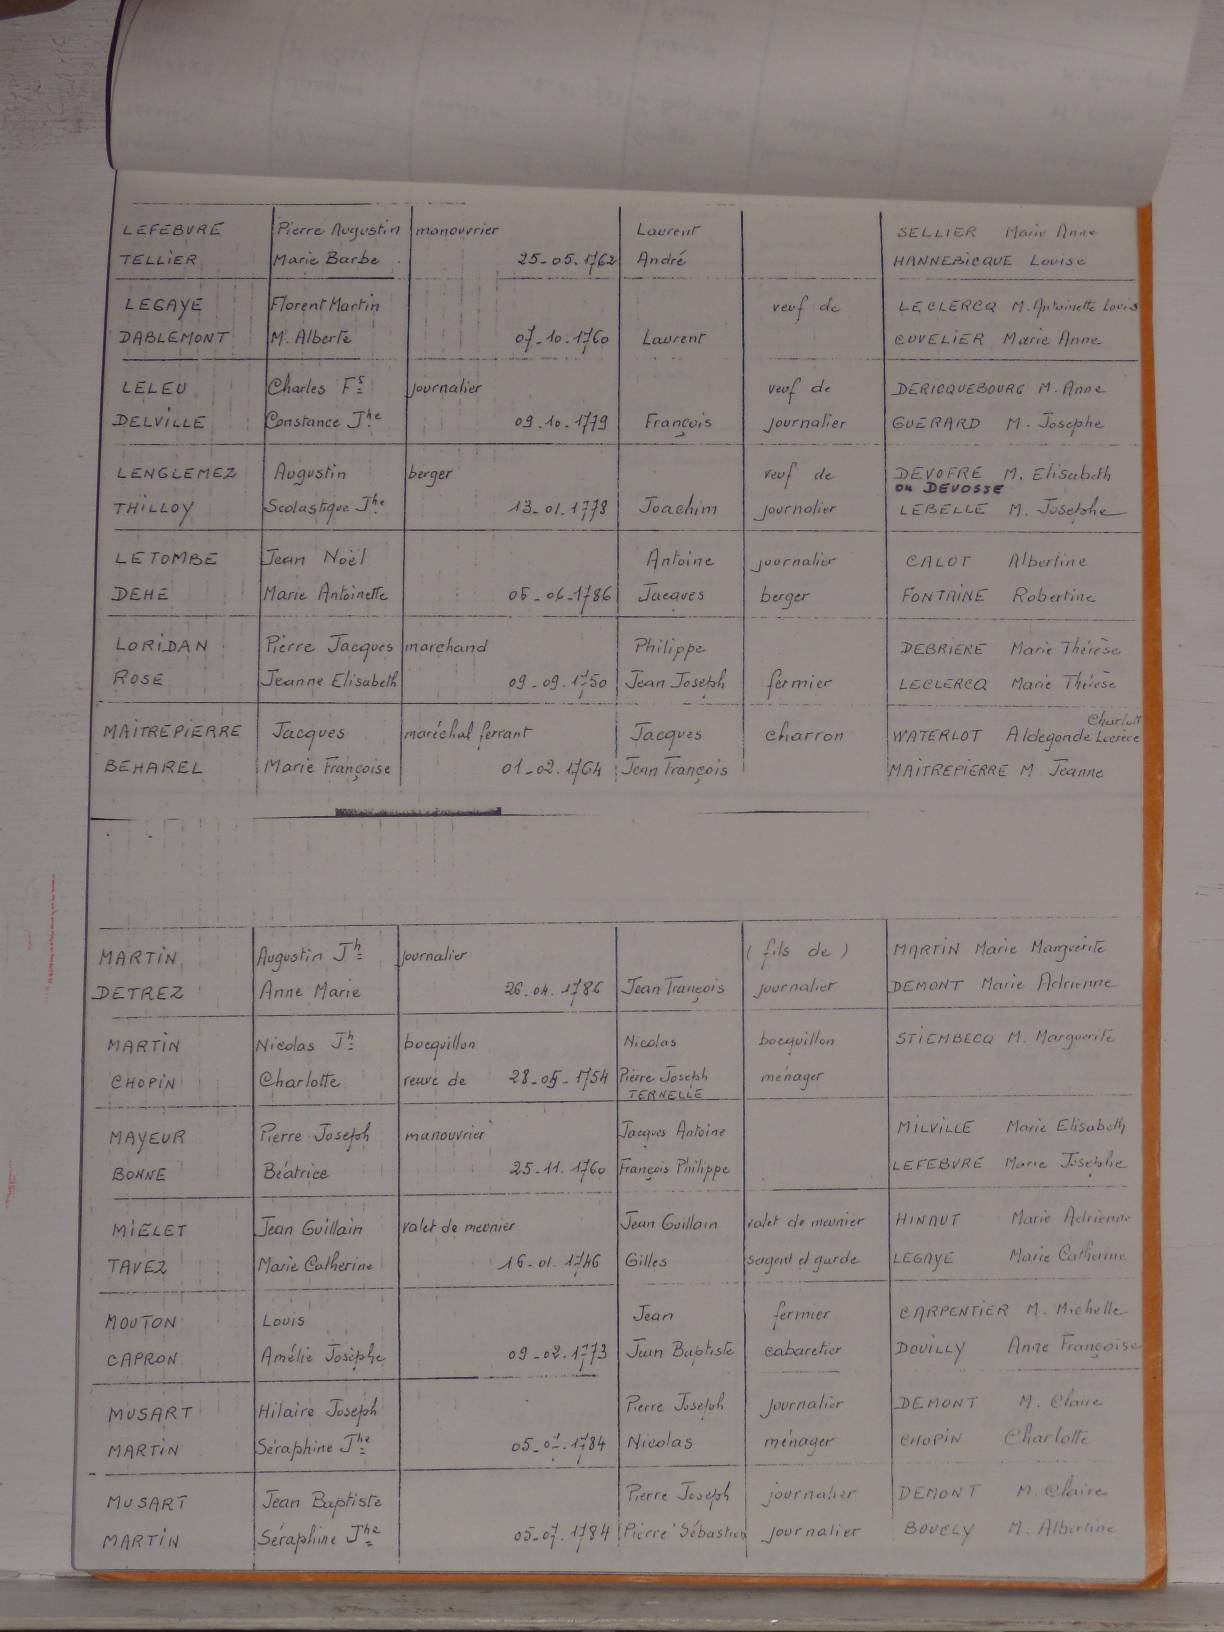 LEFEBVRE Pierre Augustin manouvrier Laurent SELLIER Marie Anne
TELLIER Marie Barbe 25-05.1762 André HANNEBICQUE Louise
LEGAYE Florent Martin veuf de LECLERCQ M. Antoinette Louis
DABLEMONT M. Alberte 07-10-1760 Laurent CUVELIER Marie Anne
LELEU Charles Fs journalier veuf de DERICQUEBOURG M. Anne
DELVILLE Constance Jhe 09-10-1779 François journalier GUERARD M. Josephe
LENGLEMEZ Augustin berger veuf de DEVOFRE M. Elisabeth
ou DEVOSSE
THILLOY Scolastique Jhe 13-01.1778 Joachim journalier LEBELLE M. Josephe
LETOMBE Jean Noël Antoine journalier CALOT Albertine
DEHE Marie Antoinette 05-06-1786 Jacques berger FONTAINE Robertine
LORIDAN Pierre Jacques marchand Philippe DEBRIERE Marie Thérèse
ROSE Jeanne Elisabeth 09-09.1750 Jean Joseph fermier LECLERCQ Marie Thérèse
Charlott
MAITREPIERRE Jacques maréchal ferrant Jacques charron WATERLOT Aldegonde Lucrèce
BEHAREL Marie Françoise 01-02.1764 Jean François MAITREPIERRE M Jeanne
MARTIN Augustin Jh journalier (fils de) MARTIN Marie Marguerite
DETREZ Anne Marie 26.04.1786 Jean François journalier DEMONT Marie Adrienne
MARTIN Nicolas Jh bocquillon Nicolas bocquillon STIEMBECQ M. Marguerite
CHOPIN Charlotte veuve de 28-05-1754 Pierre Joseph ménager
TERNELLE
MAYEUR Pierre Joseph manouvrier Jacques Antoine MILVILLE Marie Elisabeth
BONNE Béatrice 25-11.1760 François Philippe LEFEBVRE Marie Josephe
MIELET Jean Guillain valet de meunier Jean Guillain valet de meunier HINAUT Marie Adrienne
TAVEZ Marie Catherine 16-01.1746 Gilles sergent et garde LEGAYE Marie Catherine
MOUTON Louis Jean fermier CARPENTIER M. Michelle
CAPRON Amélie Josèphe 09-02.1773 Jean Baptiste cabaretier DOUILLY Anne Françoise
MUSART Hilaire Joseph Pierre Joseph journalier DEMONT M. Claire
MARTIN Séraphine Jhe 05-07-1784 Nicolas ménager CHOPIN Charlotte
MUSART Jean Baptiste Pierre Joseph journalier DEMONT M. Claire
MARTIN Séraphine Jhe 05-07.1784 Pierre Sébastien journalier BOUCLY M. Albertine